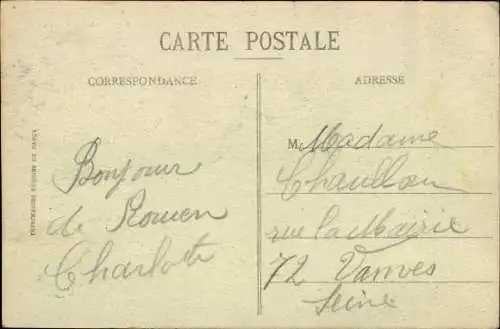 CARTE POSTALE
CORRESPONDANCE
ADRESSE
Bonjour
de Rouen
Charlotte
M Madame
rue la Mairie
72 Vanves
Seine